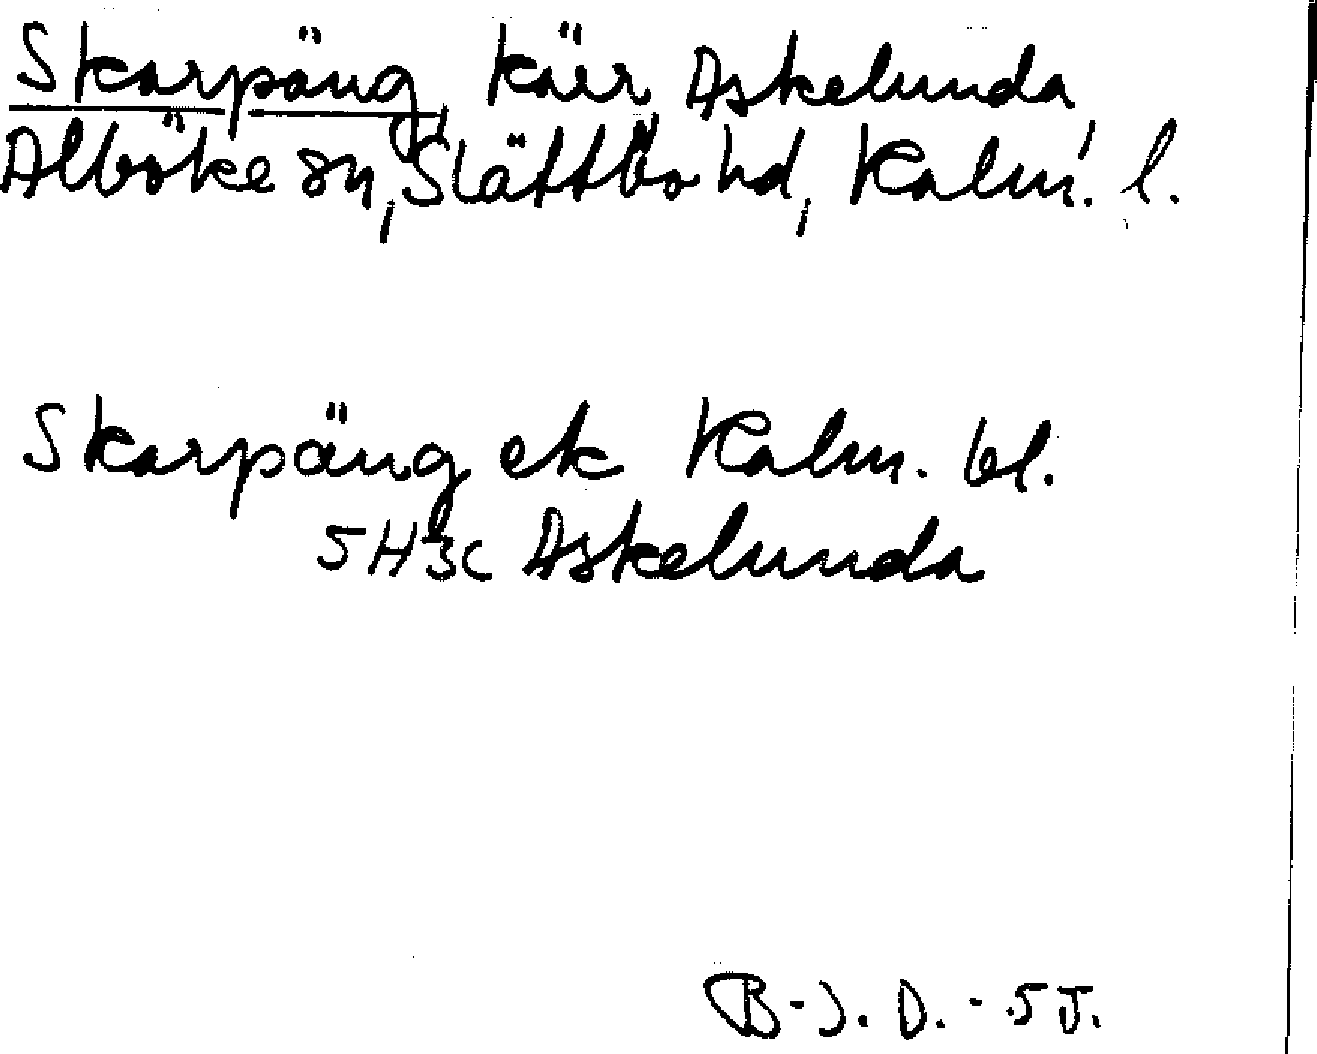 Skarpäng, kärr, Askelunda
Alböke sn, Slättbo hd, Kalm. l.
Skarpäng ek Kalm. bl.
5H3c Askelunda
B-J. D. - 5J.